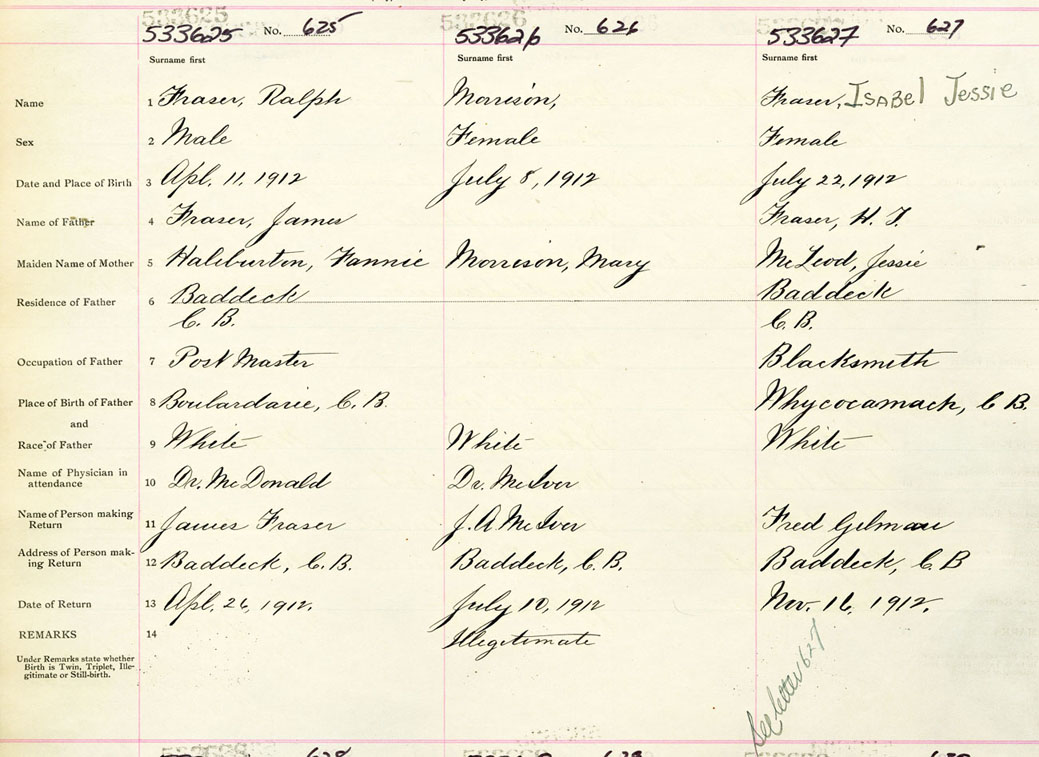 533625 No. 625 533626 No. 626 533627 No. 627
533625 533626
Surname first Surname first Surname first
Name 1 Fraser, Ralph Morrison, Fraser, Isabel Jessie
Sex 2 Male Female Female
Date and Place of Birth 3 Apl. 11. 1912 July 8, 1912 July 22, 1912
Name of Father 4 Fraser, James Fraser, H. T.
Maiden Name of Mother 5 Haliburton, Fannie Morrison, Mary McLeod, Jessie
Residence of Father 6 Baddeck Baddeck
C. B. C. B.
Occupation of Father 7 Post Master Blacksmith
Place of Birth of Father 8 Boulardarie, C. B. Whycocamach, C B.
and
Race of Father 9 White White White
Name of Physician in
attendance 10 Dr. McDonald Dr. McIver
Name of Person making
Return 11 James Fraser J. A McIver Fred Gilman
Address of Person mak-
ing Return 12 Baddeck, C. B. Baddeck, C. B. Baddeck, C. B
Date of Return 13 Apl. 26, 1912. July 10, 1912 Nov. 16. 1912.
REMARKS 14 Illegitimate
Under Remarks state whether
Birth is Twin, Triplet, Ille-
gitimate or Still-birth.
See letter 627